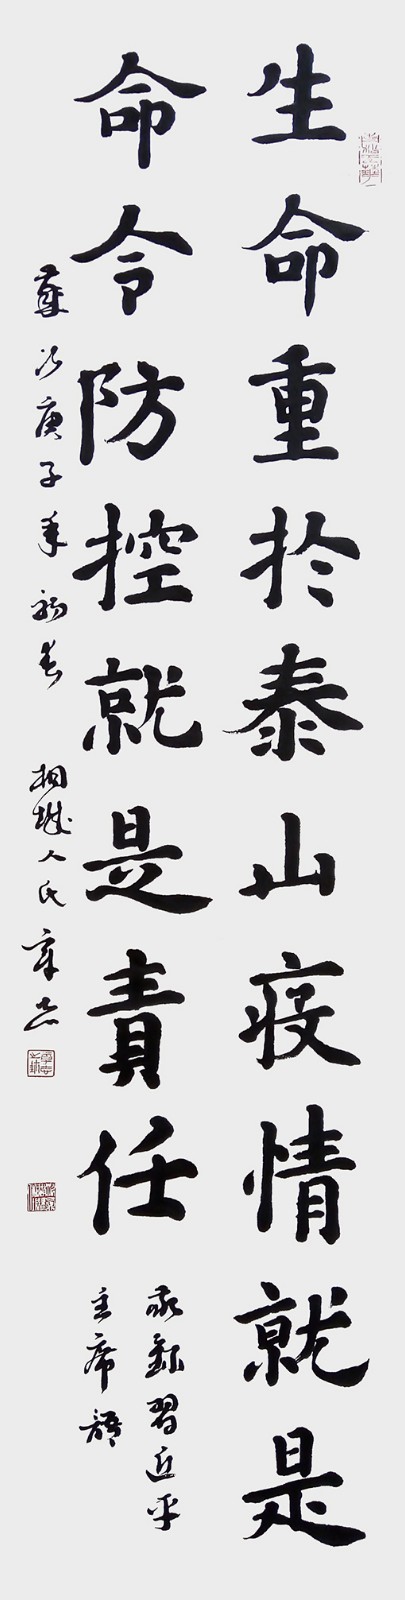 生命重於泰山疫情就是
命令防控就是責任
敬錄習近平
主席語
歲次庚子年初春 桐城人氏章